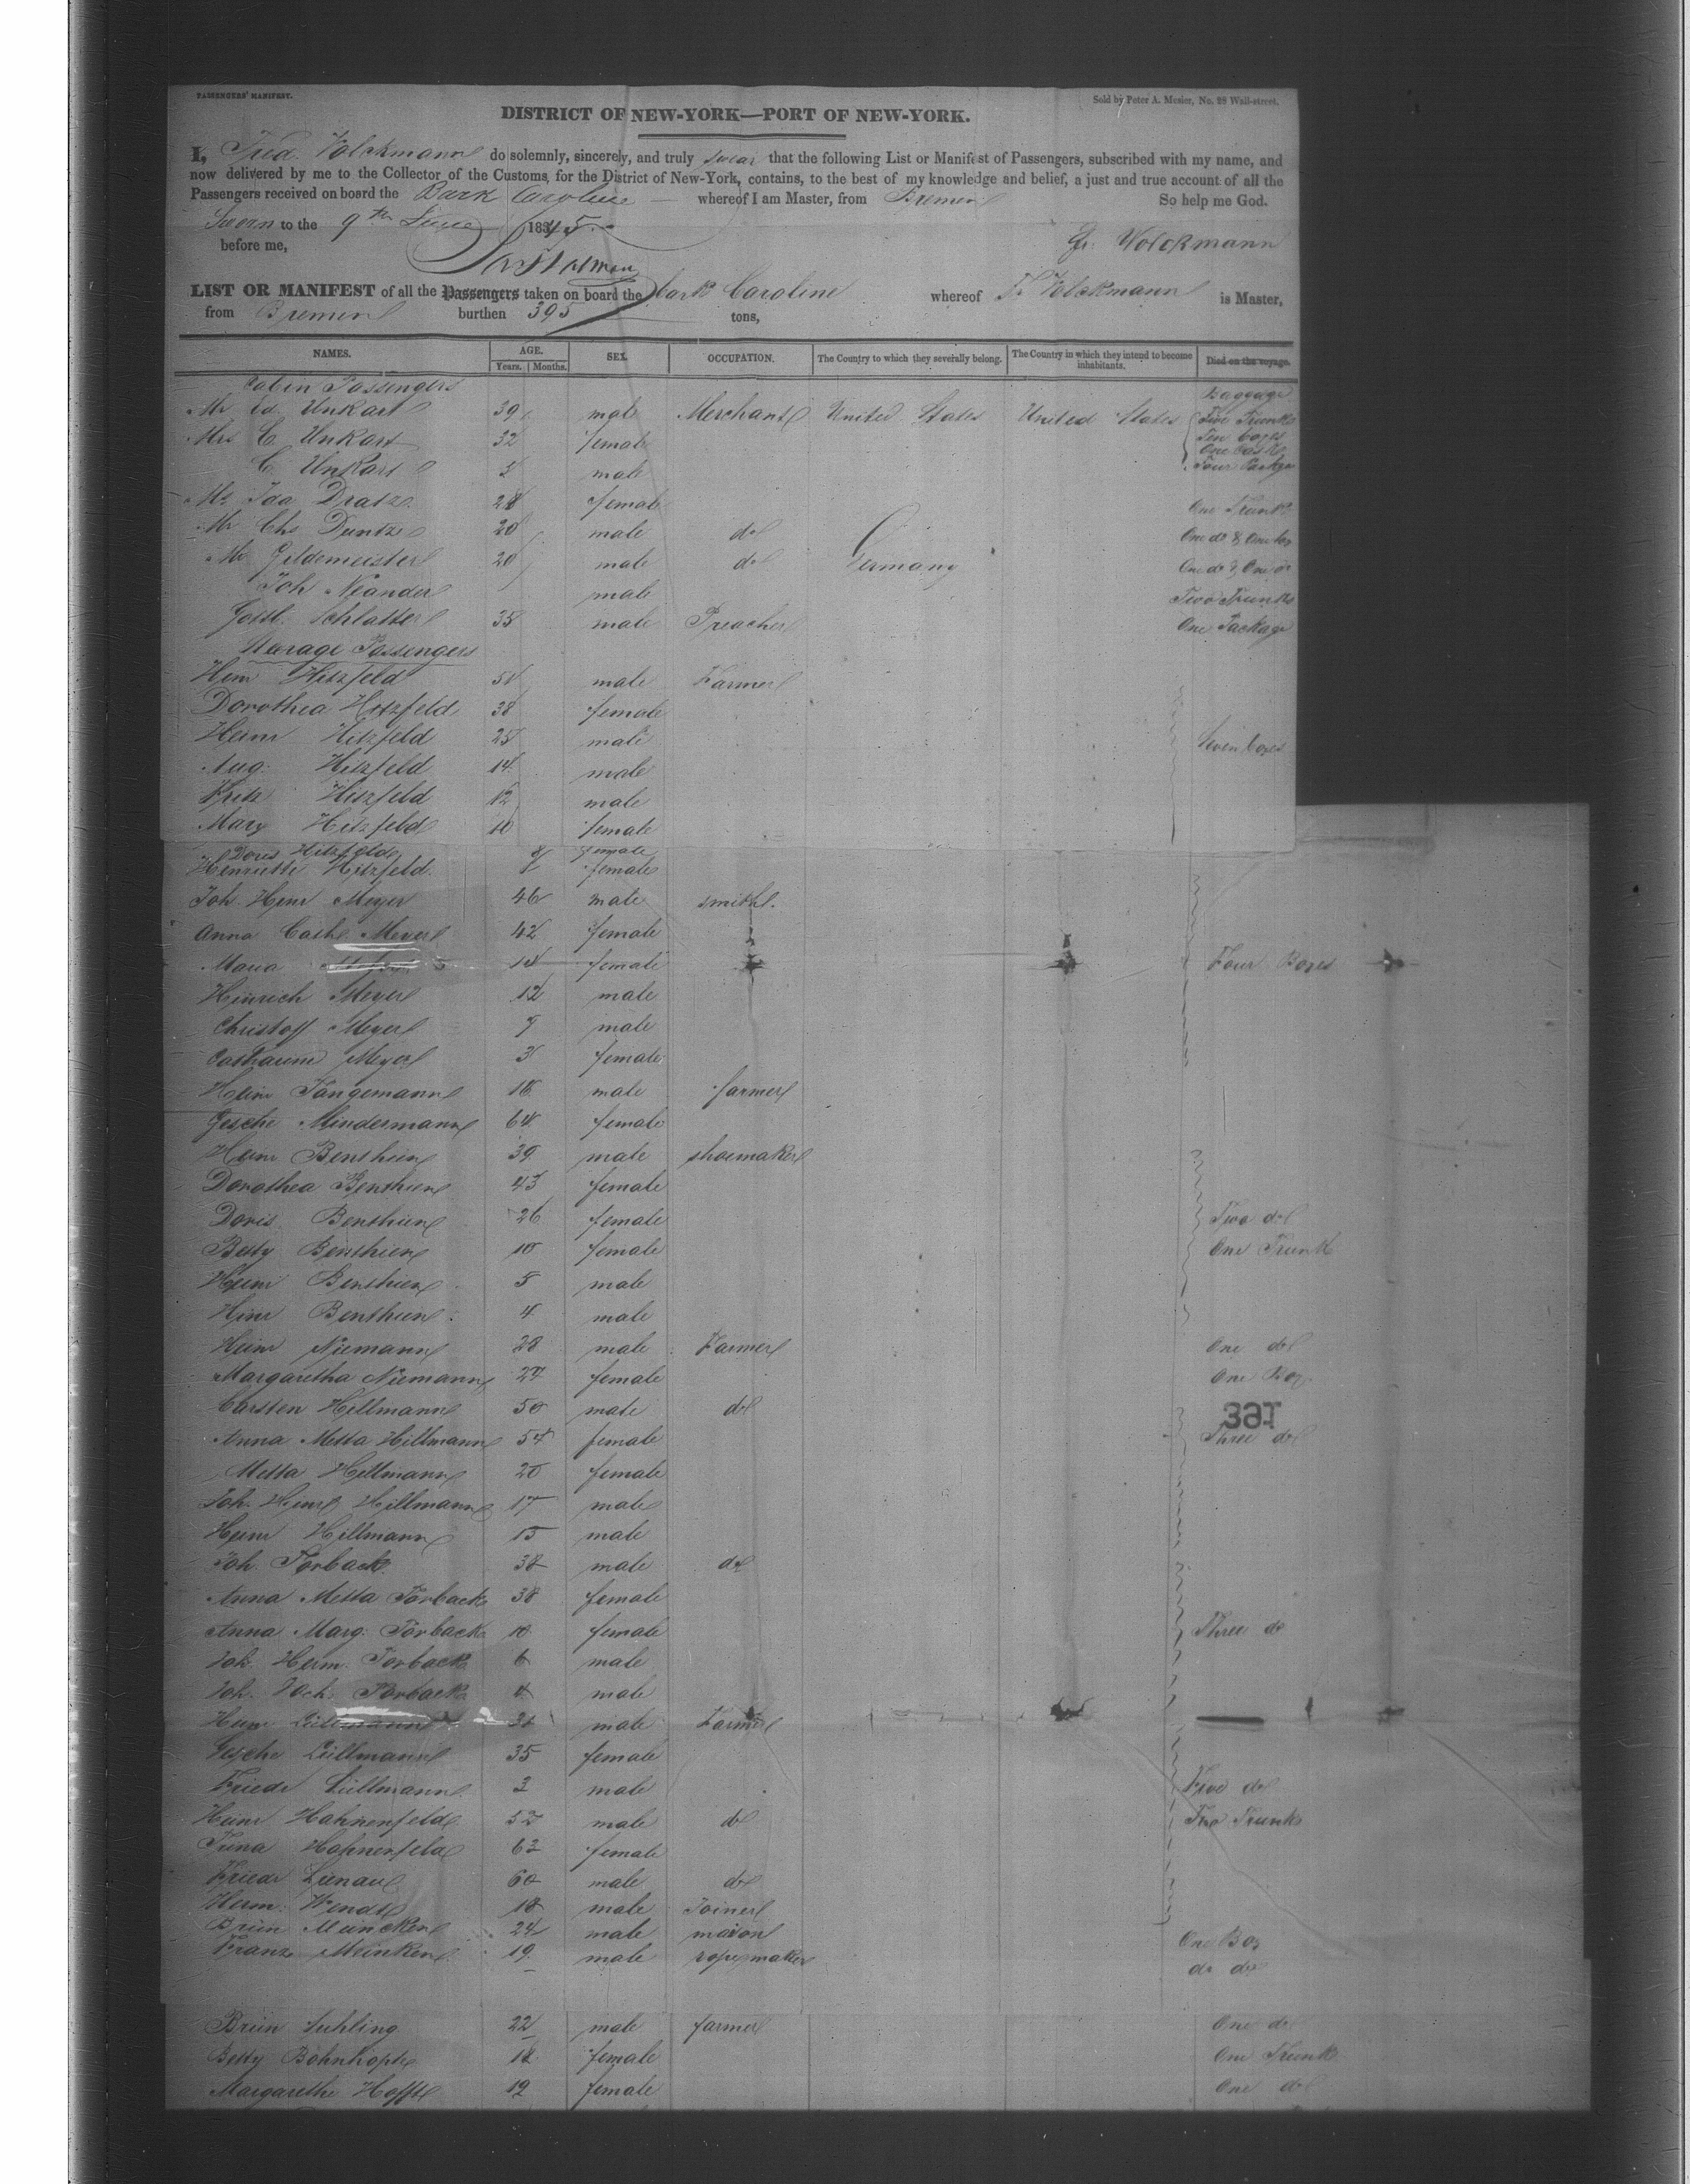 PASSENGERS' MANIFEST.
Sold by Peter A. Mesier, No. 28 Wall-street.
DISTRICT OF NEW-YORK—PORT OF NEW-YORK.
I, Fred. Volckmann do solemnly, sincerely, and truly swear that the following List or Manifest of Passengers, subscribed with my name, and
now delivered by me to the Collector of the Customs, for the District of New-York, contains, to the best of my knowledge and belief, a just and true account of all the
Passengers received on board the Bark Caroline whereof I am Master, from Bremen So help me God.
Sworn to the 9th June 1845
before me, Fr. Volckmann
LIST OR MANIFEST of all the Passengers taken on board the Bark Caroline whereof Fr Volckmann is Master,
from Bremen burthen 395 tons,
NAMES. AGE. SEX. OCCUPATION. The Country to which they severally belong. The Country in which they intend to become inhabitants. Died on the voyage.
Years. Months.
Cabin Passengers Baggage
Mr Ed. Unkart 39 male Merchant United States United States Five Trunks
Mrs C. Unkart 32 female Ten boxes
One Cask
C. Unkart 3 male Four Packages
Ida Dratze 28 female One Trunk
Mr Chs Duntze 20 male do One do & One box
Mr Gildemeister 20 male do Germany One do & One do
Joh Neander male Two Trunks
Gottl. Schlatter 35 male Preacher One Package
Steerage Passengers
Heinr Hitzfeld 51 male Farmer
Dorothea Hitzfeld 38 female
Heinr Hitzfeld 25 male Seven boxes
Aug. Hitzfeld 14 male
Fritz Hitzfeld 12 male
Mary Hitzfeld 10 female
Doris Hitzfeld 8 female
Henriette Hitzfeld female
Joh. Heinr Meyer 46 male smith
Anna Cath. Meyer 42 female
Maria Meyer 14 female Four Boxes
Hinrich Meyer 12 male
Christoff Meyer 7 male
Catharine Meyer 3 female
Heinr Tangemann 16 male farmer
Gesche Mindermann 64 female
Heinr Benthien 39 male shoemaker
Dorothea Benthien 43 female
Doris Benthien 26 female Two do
Betty Benthien 10 female One Trunk
Heinr Benthien 5 male
Hinr Benthien 4 male
Heinr Niemann 28 male Farmer One do
Margaretha Niemann 27 female One Box
Carsten Hillmann 50 male do
391
Anna Metta Hillmann 54 female Three do
Metta Hillmann 20 female
Joh. Hinr. Hillmann 17 male
Heinr Hillmann 15 male
Joh. Torback 38 male do
Anna Metta Torback 38 female
Anna Marg. Torback 10 female Three do
Joh. Herm. Torback 6 male
Joh. Torback 4 male
Heinr Lüllmann male Farmer
Gesche Lüllmann 35 female
Friedr Lüllmann 3 male Five do
Heinr Hahnenfeld 52 male do Two Trunks
Hahnenfeld 63 female
Friedr Lienau 60 male do
Herm. Wendt 18 male Joiner
Brün Muncken 24 male mason One Box
Franz Meinken 19 male ropemaker do do
Brün Suhling 22 male farmer One do
Betty Bohnhopte 18 female One Trunk
Margarethe Hofft 19 female One do